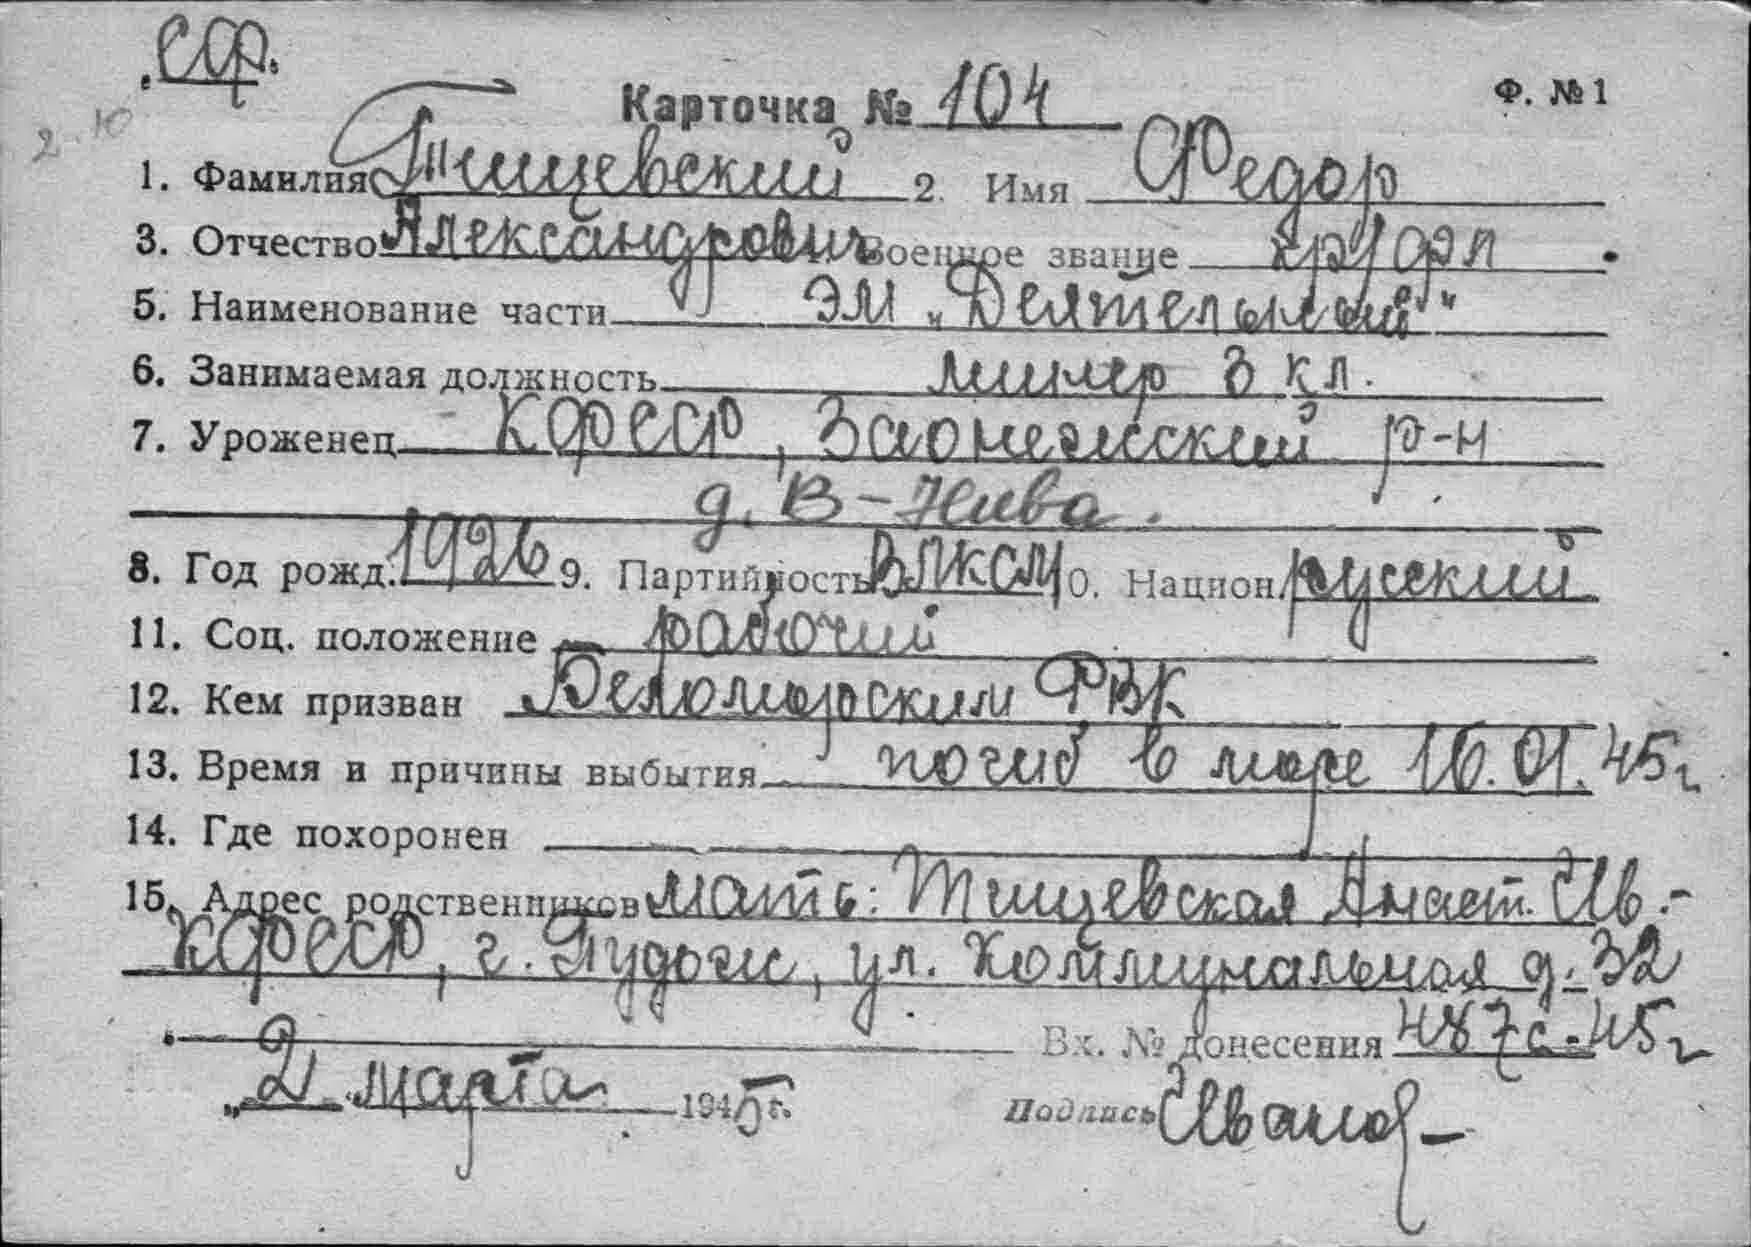 СФ.
2.10
Карточка № 104 Ф. №1
1. Фамилия Тищевский 2. Имя Федор
3. Отчество Александрович Военное звание кр/фл
5. Наименование части ЭМ „Деятельный“
6. Занимаемая должность минер 3 кл.
7. Уроженец КФССР, Заонежский р-н
д. В-Нива.
8. Год рожд. 1926 9. Партийность ВЛКСМ 10. Национ. русский
11. Соц. положение рабочий
12. Кем призван Беломорским РВК
13. Время и причины выбытия погиб в море 16.01.45г
14. Где похоронен
15. Адрес родственников мать: Тищевская Анаст. Ив.-
КФССР, г. Пудож, ул. Коммунальная д. 32
Вх. № донесения 487с-45г
„2 марта 1945 г.
Подпись Иванов